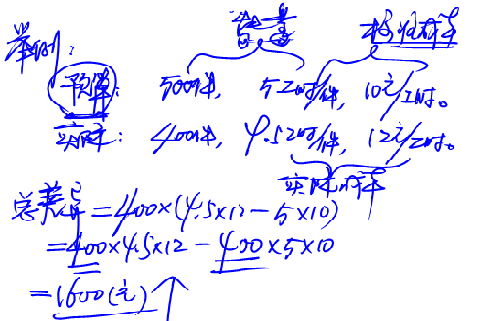 举例: 数量 标准分配率
预算: 500件, 5工时/件, 10元/工时。
实际: 400件, 4.5工时/件, 12元/工时。
实际分配率
总差异=400×(4.5×12-5×10)
=400×4.5×12-400×5×10
=1600(元)↑